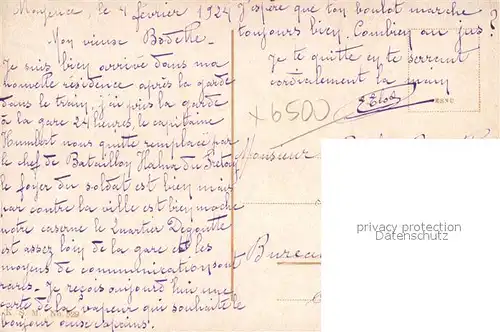 Mayence, le 4 février 1924
Mon vieux Bodette.
Je suis bien arrivé dans ma
nouvelle résidence après la garde
dans le train j'ai pris la garde
à la gare 24 heures, le capitaine
Humbert nous quitte remplacé par
le chef de Bataillon Hahn du
le foyer du soldat est bien mais
par contre la ville est bien moche
notre caserne le Quartier
est assez loin de la gare et les
moyens de communication sont
rares. Je reçois aujourd'hui une
carte de la vapeur qui souhaite le
bonjour aux copains.
J'espère que ton boulot marche
toujours bien. Combien au jus ?
Je te quitte en te serrant
cordialement la main
x6500
Monsieur
Bureau
privacy protection
Datenschutz